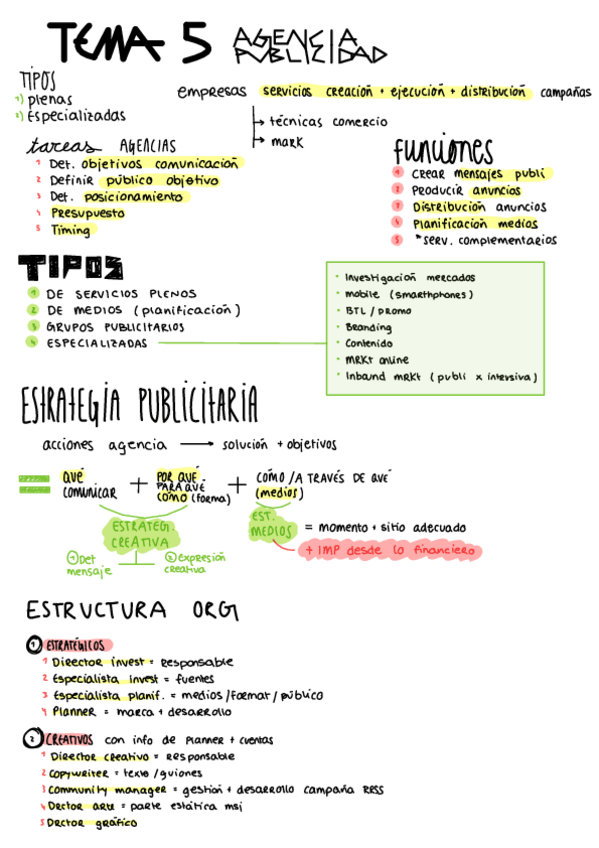 TEMA 5 AGENCIA PUBLICIDAD
TIPOS
1) plenas
2) Especializadas
empresas servicios creación + ejecución + distribución campañas
→ técnicas comercio
→ mark
tareas AGENCIAS
1 Det. objetivos comunicación
2 Definir público objetivo
3 Det. posicionamiento
4 Presupuesto
5 Timing
funciones
1 Crear mensajes publi
2 Producir anuncios
3 Distribución anuncios
4 Planificación medios
5 *serv. complementarios
TIPOS
1 DE SERVICIOS PLENOS
2 DE MEDIOS (planificación)
3 GRUPOS PUBLICITARIOS
4 ESPECIALIZADAS
· Investigación mercados
· mobile (smarthphones)
· BTL / promo
· Branding
· Contenido
· MRKt online
· Inbound MRKt (publi x intensiva)
ESTRATEGIA PUBLICITARIA
acciones agencia → solución + objetivos
= QUÉ comunicar + POR QUÉ PARA QUÉ CÓMO (forma) + CÓMO /A TRAVÉS DE QUÉ (medios)
ESTRATEG. CREATIVA
① Det mensaje
② expresión creativa
EST. MEDIOS = momento + sitio adecuado
→ + IMP desde lo financiero
ESTRUCTURA ORG
1 ESTRATÉGICOS
1 Director invest = Responsable
2 Especialista invest = fuentes
3 Especialista planif. = medios /format / público
4 Planner = marca + desarrollo
2 CREATIVOS con info de Planner + cuentas
1 Director creativo = Responsable
2 Copywriter = texto /guiones
3 Community manager = gestión + desarrollo campaña RRSS
4 Drctor arte = parte estática msj
5 Drctor gráfico